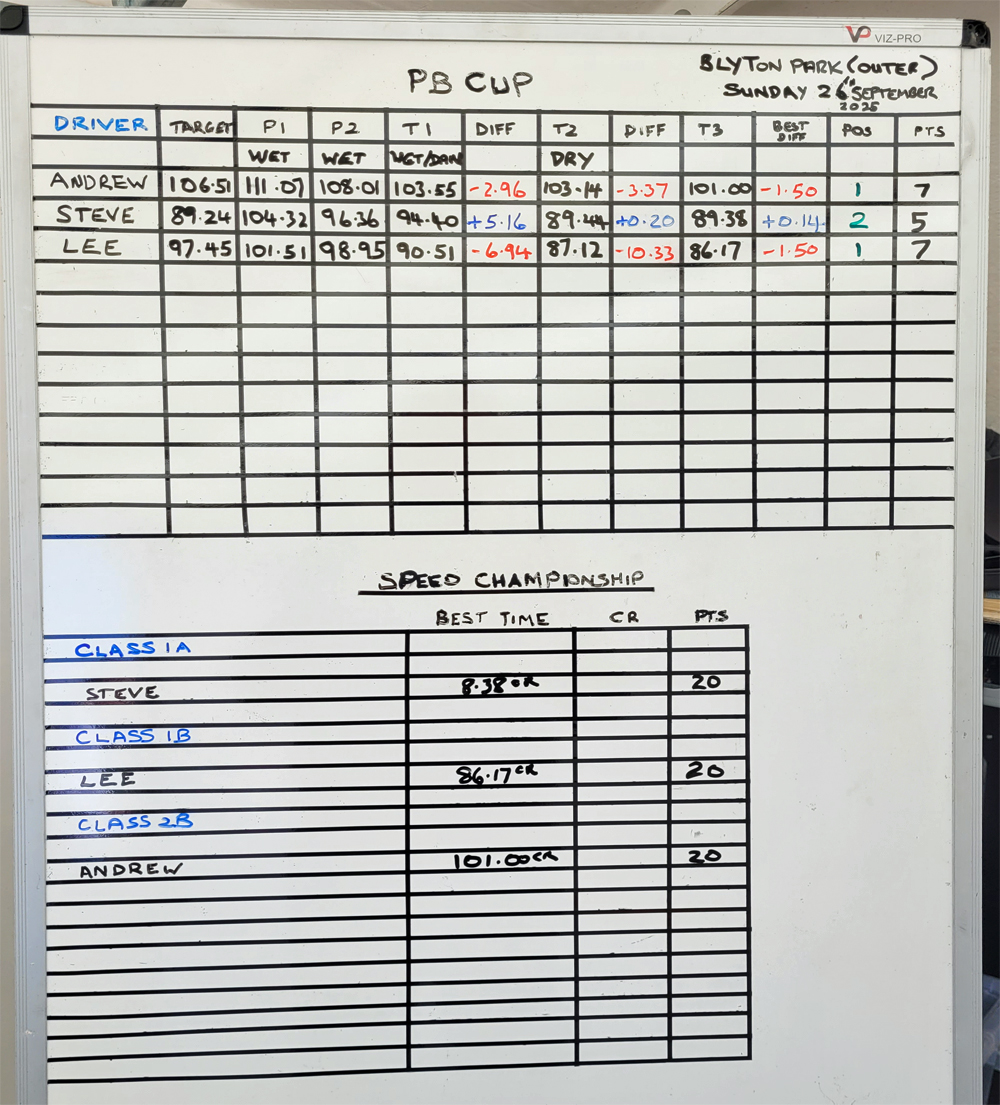 VP VIZ-PRO
BLYTON PARK (OUTER)
PB CUP
SUNDAY 26th SEPTEMBER
2025
DRIVER TARGET P1 P2 T1 DIFF T2 DIFF T3 BEST DIFF POS PTS
WET WET WET/DAMP DRY
ANDREW 106.51 111.07 108.01 103.55 -2.96 103.14 -3.37 101.00 -1.50 1 7
STEVE 89.24 104.32 96.36 94.40 +5.16 89.44 +0.20 89.38 +0.14 2 5
LEE 97.45 101.51 98.95 90.51 -6.94 87.12 -10.33 86.17 -1.50 1 7
SPEED CHAMPIONSHIP
BEST TIME CR PTS
CLASS 1A
STEVE 8.38 CR 20
CLASS 1B
LEE 86.17 CR 20
CLASS 2B
ANDREW 101.00 CR 20